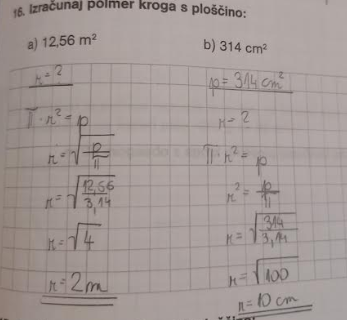 16. Izračunaj polmer kroga s ploščino:
a) 12,56 m²
r = ?
π · r² = p
r = √(p/π)
r = √(12,56/3,14)
r = √4
r = 2m
b) 314 cm²
p = 314 cm²
r = ?
π · r² = p
r² = p/π
r = √(314/3,14)
r = √100
r = 10 cm